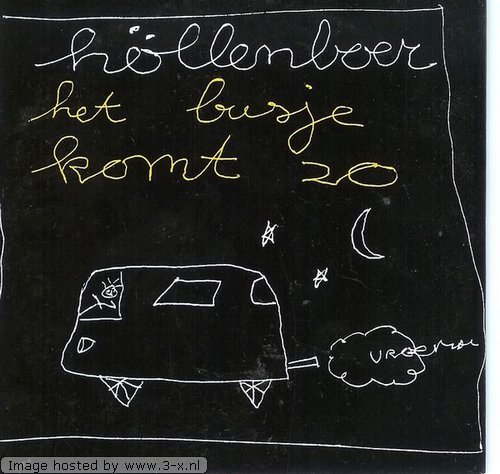 höllenboer
het busje
komt zo
vroemm
Image hosted by www.3-x.nl